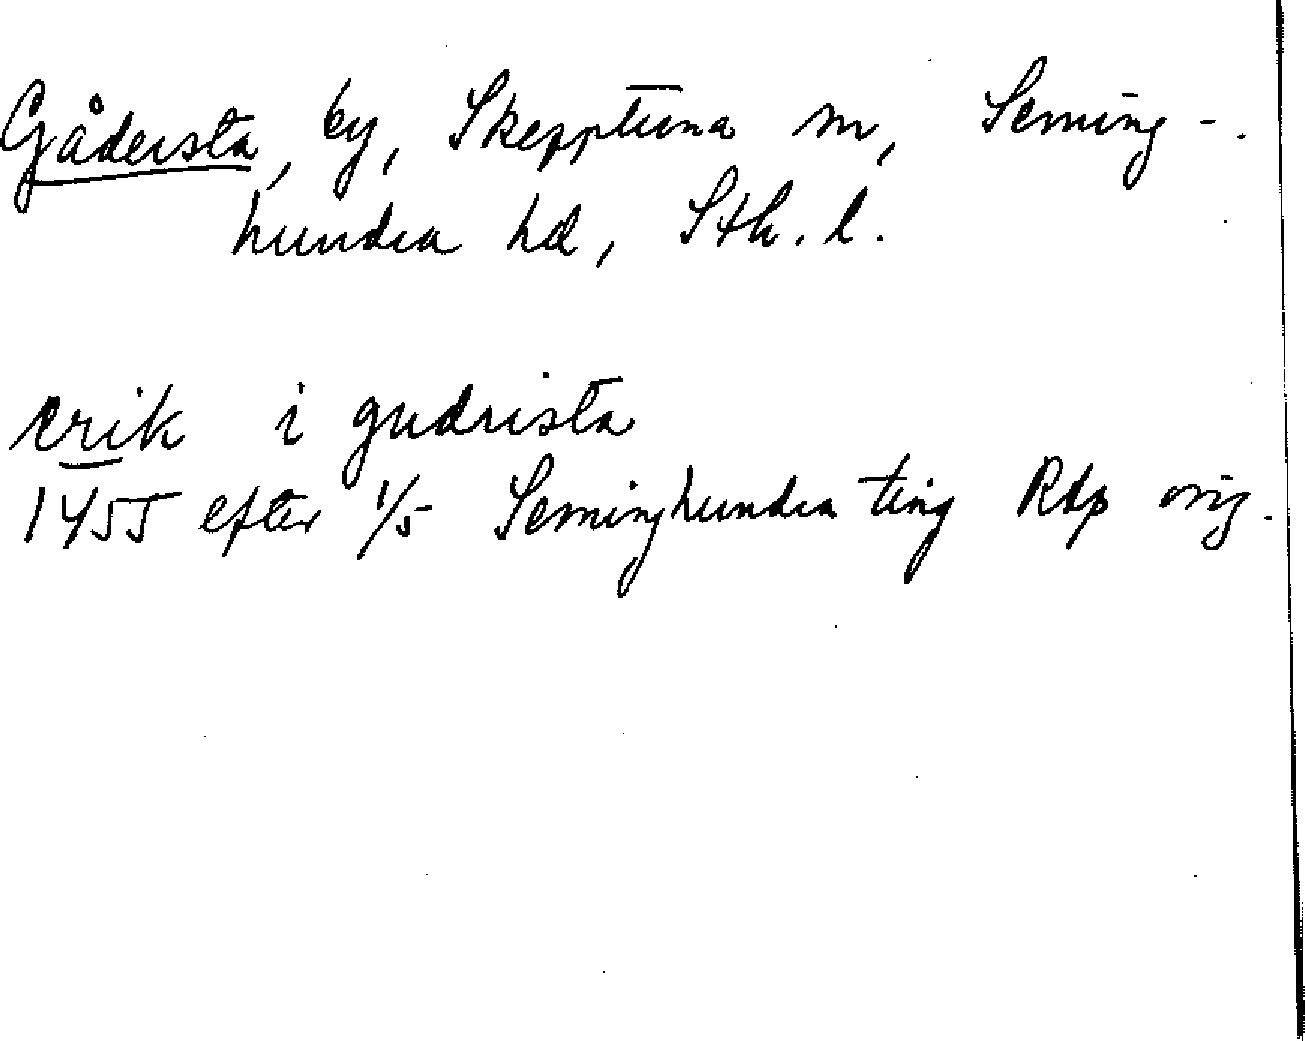 Gådersta, by, Skepptuna sn, Seming-
hundra hd, Sth. l.
erik i gudrista
1455 efter 1/5 Seminghundra ting Rdp orig.